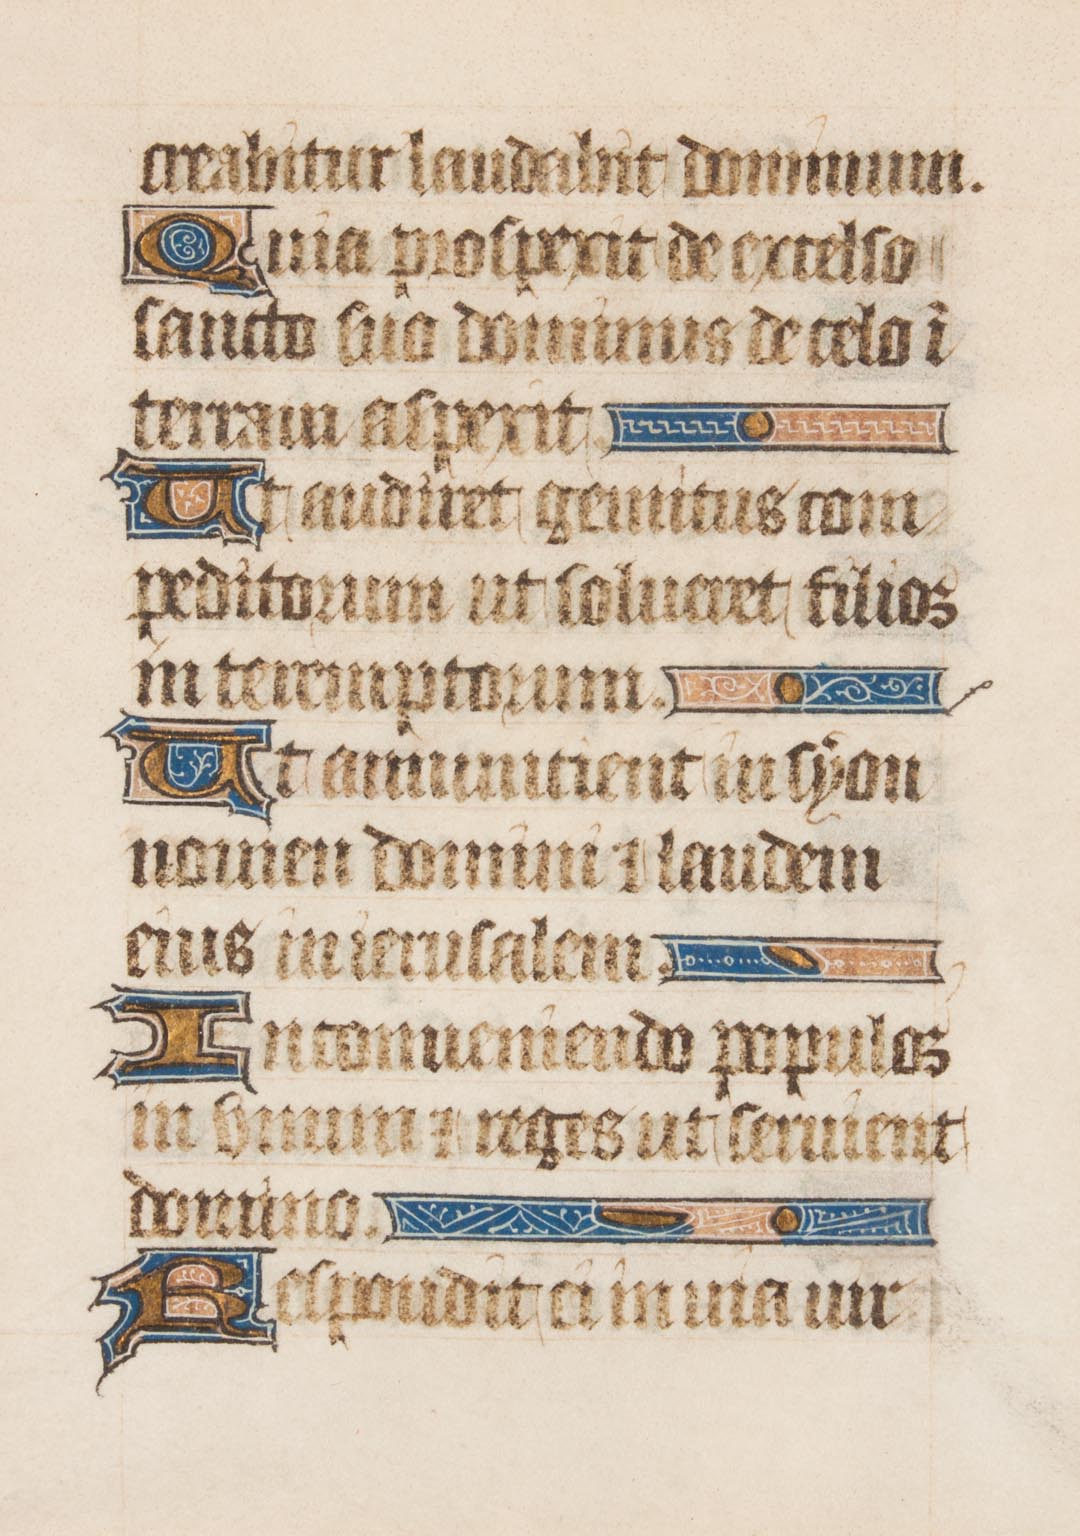 creabitur laudabit dominum.
Quia prospexit de excelso
sancto suo dominus de celo ī
terram aspexit.
Ut audiret gemitus com
peditorum ut solueret filios
interemptorum.
Ut annuntient in syon
nomen domini ⁊ laudem
eius in ierusalem.
In conueniendo populos
in vnum ⁊ reges ut seruient
domino.
Respondit ei in uia uir